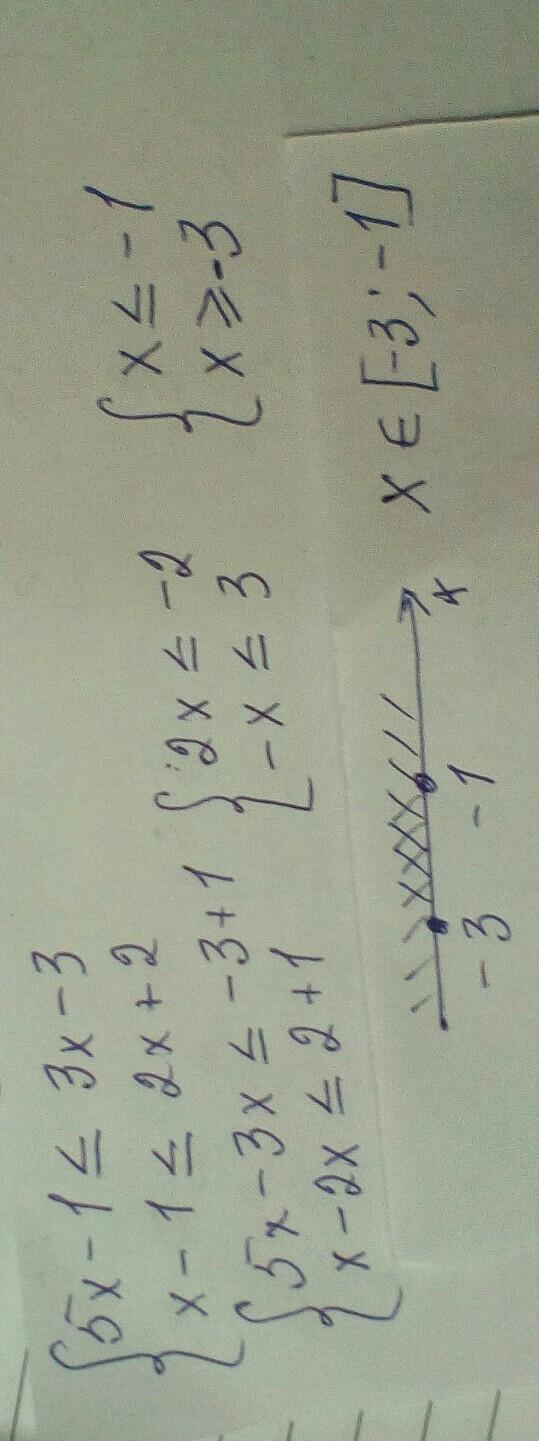 {5x - 1 ≤ 3x - 3
x - 1 ≤ 2x + 2
{5x - 3x ≤ -3 + 1
x - 2x ≤ 2 + 1
{2x ≤ -2
-x ≤ 3
{x ≤ -1
x ≥ -3
-3 -1 x
x ∈ [-3; -1]